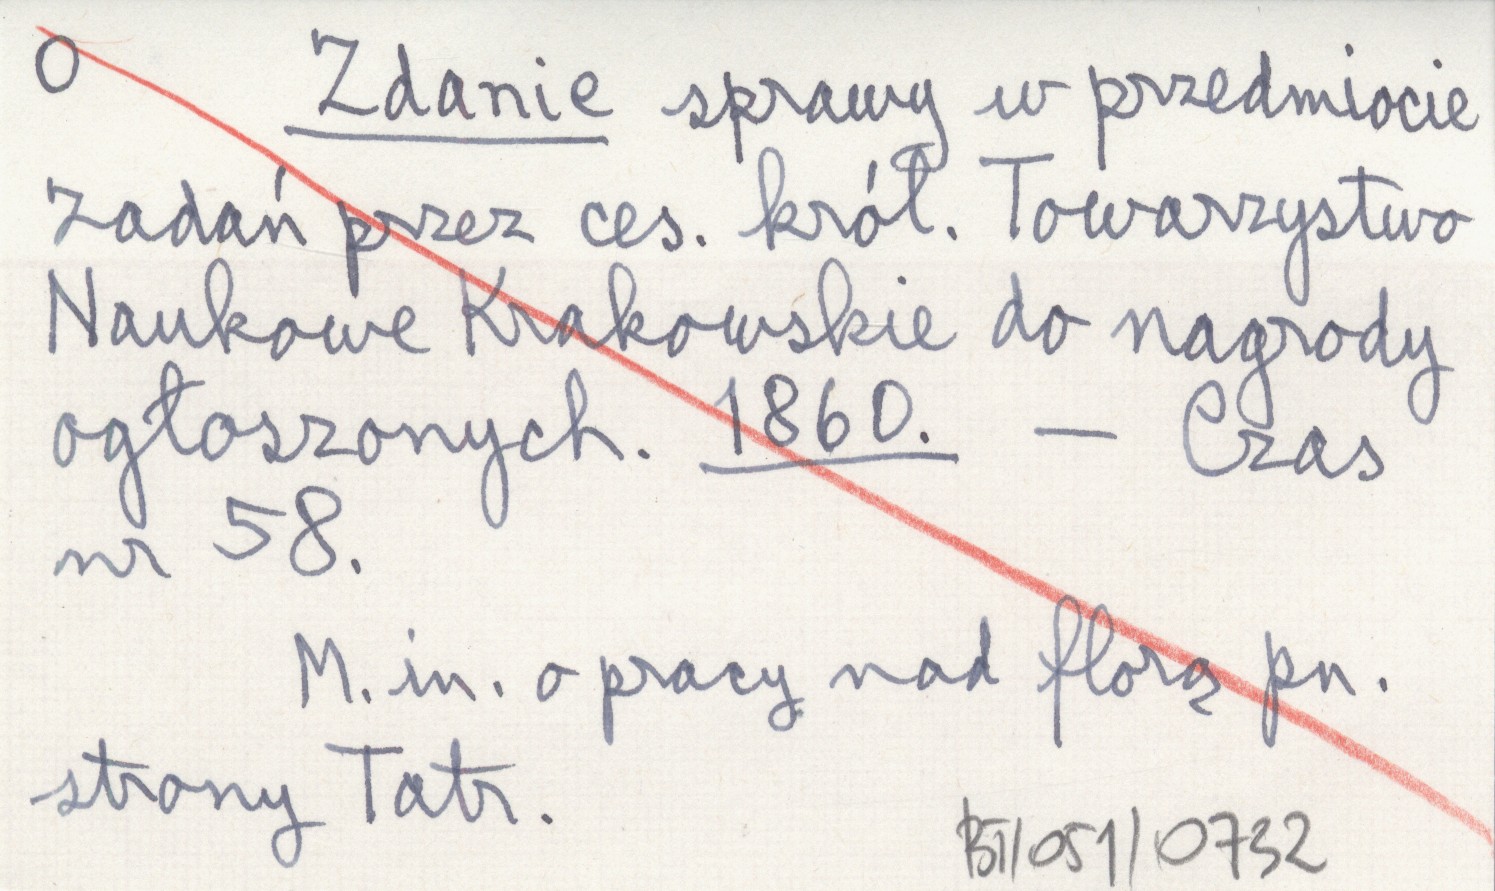 O Zdanie sprawy w przedmiocie
zadań przez ces. król. Towarzystwo
Naukowe Krakowskie do nagrody
ogłoszonych. 1860. — Czas
nr 58.
M. in. o pracy nad florą pn.
strony Tatr.
BT/051/0732